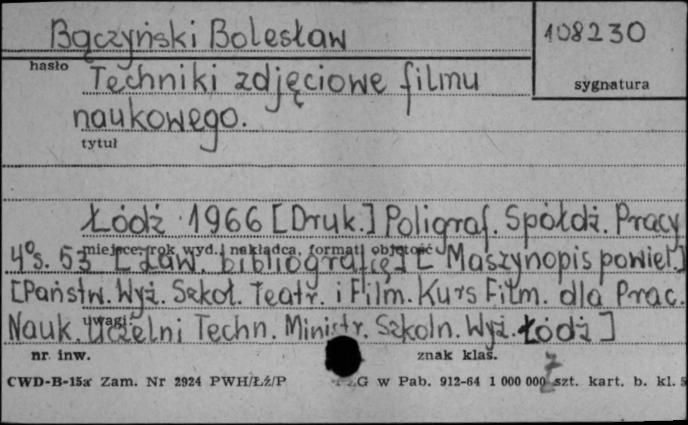 Bączyński Bolesław
108230
hasło
sygnatura
Techniki zdjęciowe filmu
naukowego.
tytuł
Łódź 1966 [Druk.] Poligraf. Spółdz. Pracy
miejsce, rok wyd. nakładca, format objętość
4°s. 53 [Zaw. bibliografię] [Maszynopis powiel.]
[Państw. Wyż. Szkoł. Teatr. i Film. Kurs Film. dla Prac.
uwagi
Nauk. Uczelni Techn. Ministr. Szkoln. Wyż. Łódź]
nr inw.
znak klas.
CWD-B-15a Zam. Nr 2924 PWH/Łź/P
G w Pab. 912-64 1 000 000 szt. kart. b. kl. 5